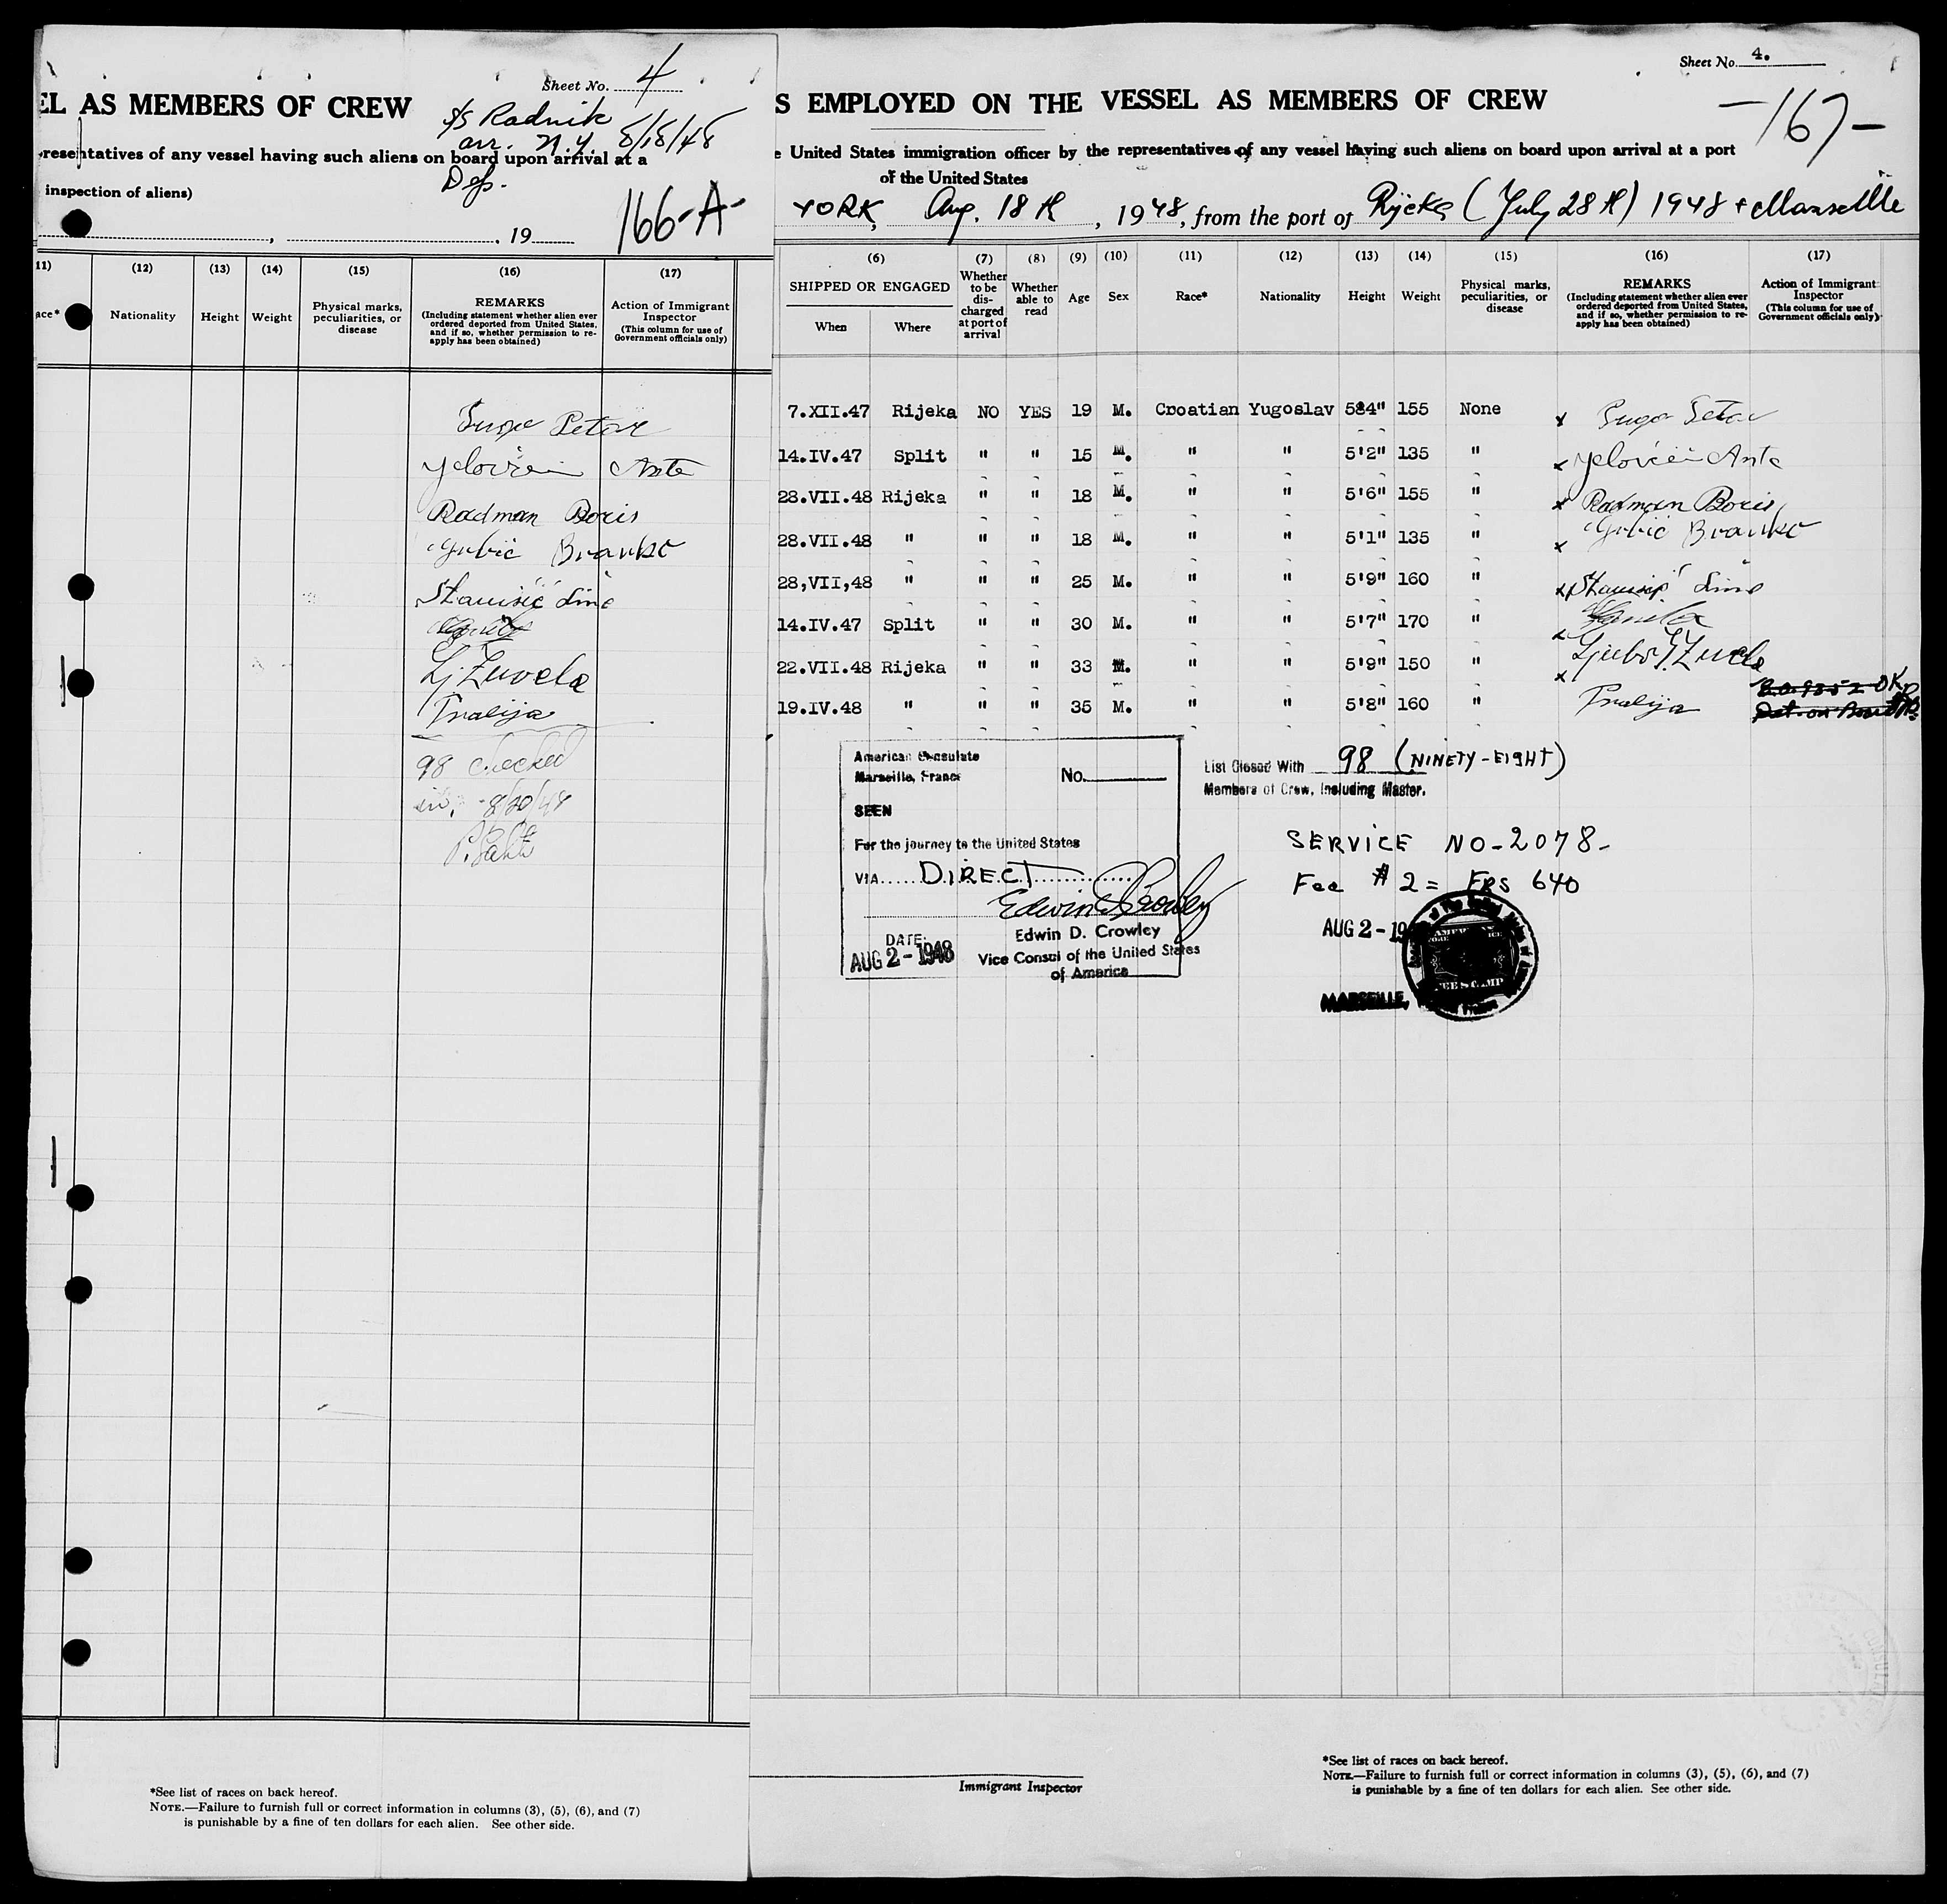 Sheet No. 4
EL AS MEMBERS OF CREW
S/S Radnik
arr. N.Y. 8/18/48
resentatives of any vessel having such aliens on board upon arrival at a
Dep.
inspection of aliens)
166-A-
, 19
11) (12) (13) (14) (15) (16) (17)
ace* Nationality Height Weight Physical marks, peculiarities, or disease REMARKS (Including statement whether alien ever ordered deported from United States, and if so, whether permission to re-apply has been obtained) Action of Immigrant Inspector (This column for use of Government officials only)
Petar
Ante
Radman Boris
Grbić Branko
Stanisić Dino
Lj Zuvela
Pralija
98 checked
in, 8/20/48
*See list of races on back hereof.
NOTE.—Failure to furnish full or correct information in columns (3), (5), (6), and (7)
is punishable by a fine of ten dollars for each alien. See other side.
Sheet No. 4.
S EMPLOYED ON THE VESSEL AS MEMBERS OF CREW
-167-
e United States immigration officer by the representatives of any vessel having such aliens on board upon arrival at a port
of the United States
YORK, Aug. 18th, 1948, from the port of Rijeka (July 28th) 1948 + Marseille
(6) (7) (8) (9) (10) (11) (12) (13) (14) (15) (16) (17)
SHIPPED OR ENGAGED When Where Whether to be dis-charged at port of arrival Whether able to read Age Sex Race* Nationality Height Weight Physical marks, peculiarities, or disease REMARKS (Including statement whether alien ever ordered deported from United States, and if so, whether permission to re-apply has been obtained) Action of Immigrant Inspector (This column for use of Government officials only)
7.XII.47 Rijeka NO YES 19 M. Croatian Yugoslav 5'4" 155 None x Petar
14.IV.47 Split " " 15 M. " " 5'2" 135 " x Ante
28.VII.48 Rijeka " " 18 M. " " 5'6" 155 " x Radman Boris
28.VII.48 " " " 18 M. " " 5'1" 135 " x Grbić Branko
28,VII,48 " " " 25 M. " " 5'9" 160 " x Stanisić Dino
14.IV.47 Split " " 30 M. " " 5'7" 170 " x
22.VII.48 Rijeka " " 33 M. " " 5'9" 150 " x Ljubo Zuvela
19.IV.48 " " " 35 M. " " 5'8" 160 " Pralija
American Consulate
Marseille, France No.
SEEN
For the journey to the United States
VIA DIRECT
Edwin D Crowley
Edwin D. Crowley
Vice Consul of the United States
of America
DATE:
AUG 2 - 1948
List Closed With 98 (NINETY-EIGHT)
Members of Crew, Including Master.
SERVICE NO-2078-
Fee # 2 = FRS 640
AUG 2 - 19
MARSEILLE,
Immigrant Inspector
*See list of races on back hereof.
NOTE.—Failure to furnish full or correct information in columns (3), (5), (6), and (7)
is punishable by a fine of ten dollars for each alien. See other side.